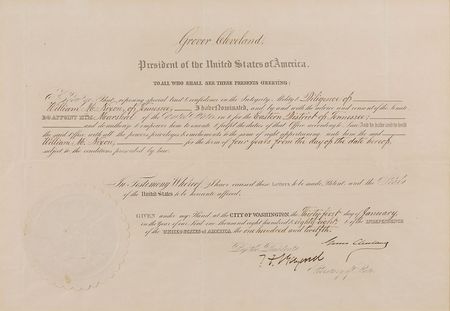 Grover Cleveland,
President of the United States of America.
TO ALL WHO SHALL SEE THESE PRESENTS GREETING:
Know Ye, That, reposing special trust and Confidence in the Integrity, Ability & Diligence of
William M. Nixon, of Tennessee, I have Nominated, and by and with the advice and consent of the Senate
DO APPOINT HIM, Marshal of the United States in & for the Eastern District of Tennessee;
and do authorize & empower him to execute & fulfil the duties of that Office according to Law: And to have and to hold
the said Office, with all the powers, privileges & emoluments to the same of right appertaining unto him the said
William M. Nixon, for the term of four years from the day of the date hereof,
subject to the conditions prescribed by law.
In Testimony Whereof, I have caused these LETTERS to be made Patent, and the Seal
of the United States to be hereunto affixed.
GIVEN under my Hand at the CITY OF WASHINGTON, the Thirty first day of January,
in the Year of our Lord one thousand eight hundred & eighty eight, & of the INDEPENDENCE
of the UNITED STATES OF AMERICA, the one hundred and twelfth.
Grover Cleveland
By the President:
T. F. Bayard
Secretary of State.